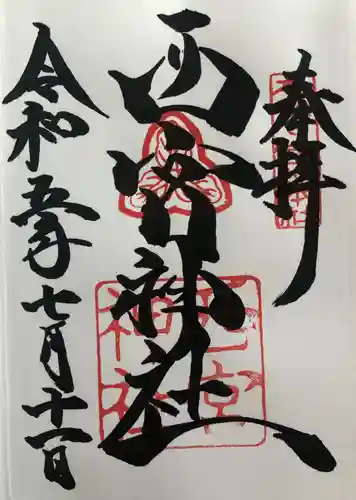 奉拝
西宮神社
令和五年七月十一日